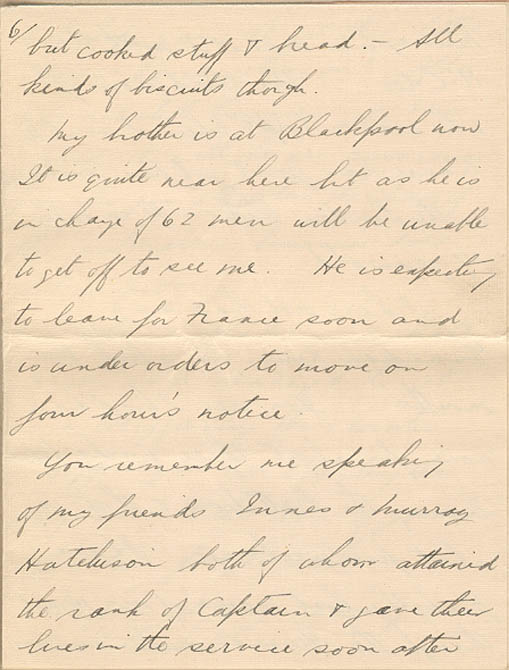 6/
but cooked stuff & bread. – All
kinds of biscuits though.
My brother is at Blackpool now
It is quite near here but as he is
in charge of 62 men will be unable
to get off to see me. He is expecting
to leave for France soon and
is under orders to move on
four hour's notice.
You remember me speaking
of my friends Innes & Murray
Hutchison both of whom attained
the rank of Captain & gave their
lives in the service soon after